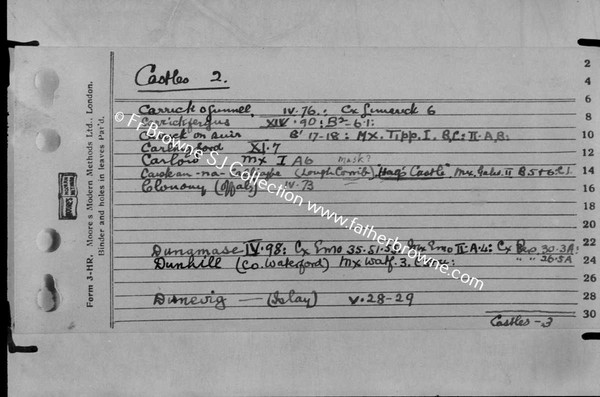 Castles 2.
Carrick o Gunnell IV.76.: Cx Limerick 6
Carrickfergus XIV.90: B2-61:
Carrick on Suir B'17-18: Mx. Tipp. I. B,C: II.A,B:
Carlingford XI.7
Carlow Mx I A6 Mask?
(Lough Corrib) Hag's Castle Mx. Galw. II B5+6. C.I.
Clonony (Offaly) IV.73
Dungmase IV.98: Cx Emo 35.51.50 Mx Emo II.A.4: Cx 30.3A:
Dunhill (Co. Waterford) Mx Watf. 3. " " 26.5A
Dunevig — (Islay) V.28-29
Castles - 3
Form 3-HR. Moore's Modern Methods Ltd., London.
Binder and holes in leaves Pat'd.
2
4
6
8
10
12
14
16
18
20
22
24
26
28
30
© Fr Browne SJ Collection www.fatherbrowne.com